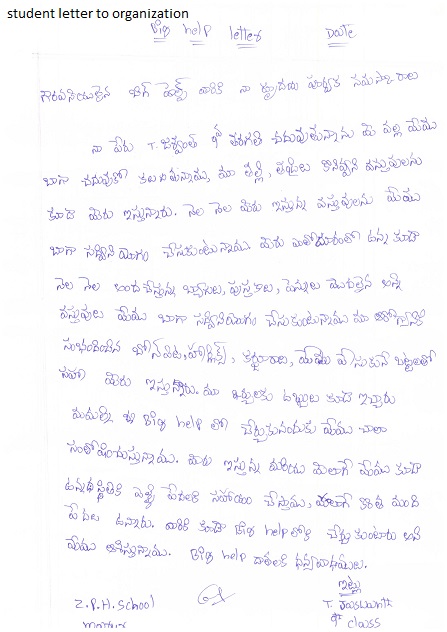 student letter to organization
Big help letter Date
గౌరవనీయులైన బిగ్ హెల్ప్ వారికి నా హృదయ పూర్వక నమస్కారాలు
నా పేరు T. జశ్వంత్ 9వ తరగతి చదువుతున్నాను మీ వల్ల మేము
బాగా చదువుకో కలుగుతున్నాము. మా తల్లి, తండ్రులు కొనివ్వని వస్తువులను
కూడా మీరు ఇస్తున్నారు. నెల నెల మీరు ఇస్తున్న వస్తువులను మేము
బాగా సద్వినియోగం చేసుకుంటున్నాము. మీరు ఎంతోదూరంలో ఉన్న కూడా
నెల నెల అందచేస్తున్న బ్యాగులు, పుస్తకాలు, పెన్నులు మొదలైన అన్ని
వస్తువులు మేము బాగా సద్వినియోగం చేసుకుంటున్నాము మా ఆరోగ్యానికి
సంభందించిన బోన్‌విటా, హార్లిక్స్, ఖర్జూరాలు, మేము వేసుకునే బట్టలతో
సహా మీరు ఇస్తున్నారు. మా ఖర్చులకు డబ్బులు కూడా ఇచ్చారు
మమల్ని ఈ Big help లో చేర్చుకునందుకు మేము చాలా
సంతోషిస్తున్నాము. మీరు ఇస్తున్న మరియు మీలాగే మేము కూడా
ఉన్నతస్థితికి వెళ్ళి పేదలకి సహాయం చేస్తాము. మాలాగే కొంత మంది
పేదలు ఉన్నారు. వారికి కూడా Big helpలోకి చేర్చుకుంటారు అని
మేము ఆశిస్తున్నాము. Big help దాతలకి ధన్యవాదములు.
ఇట్లు
Z.P.H. School T. Jaswanth
9th class